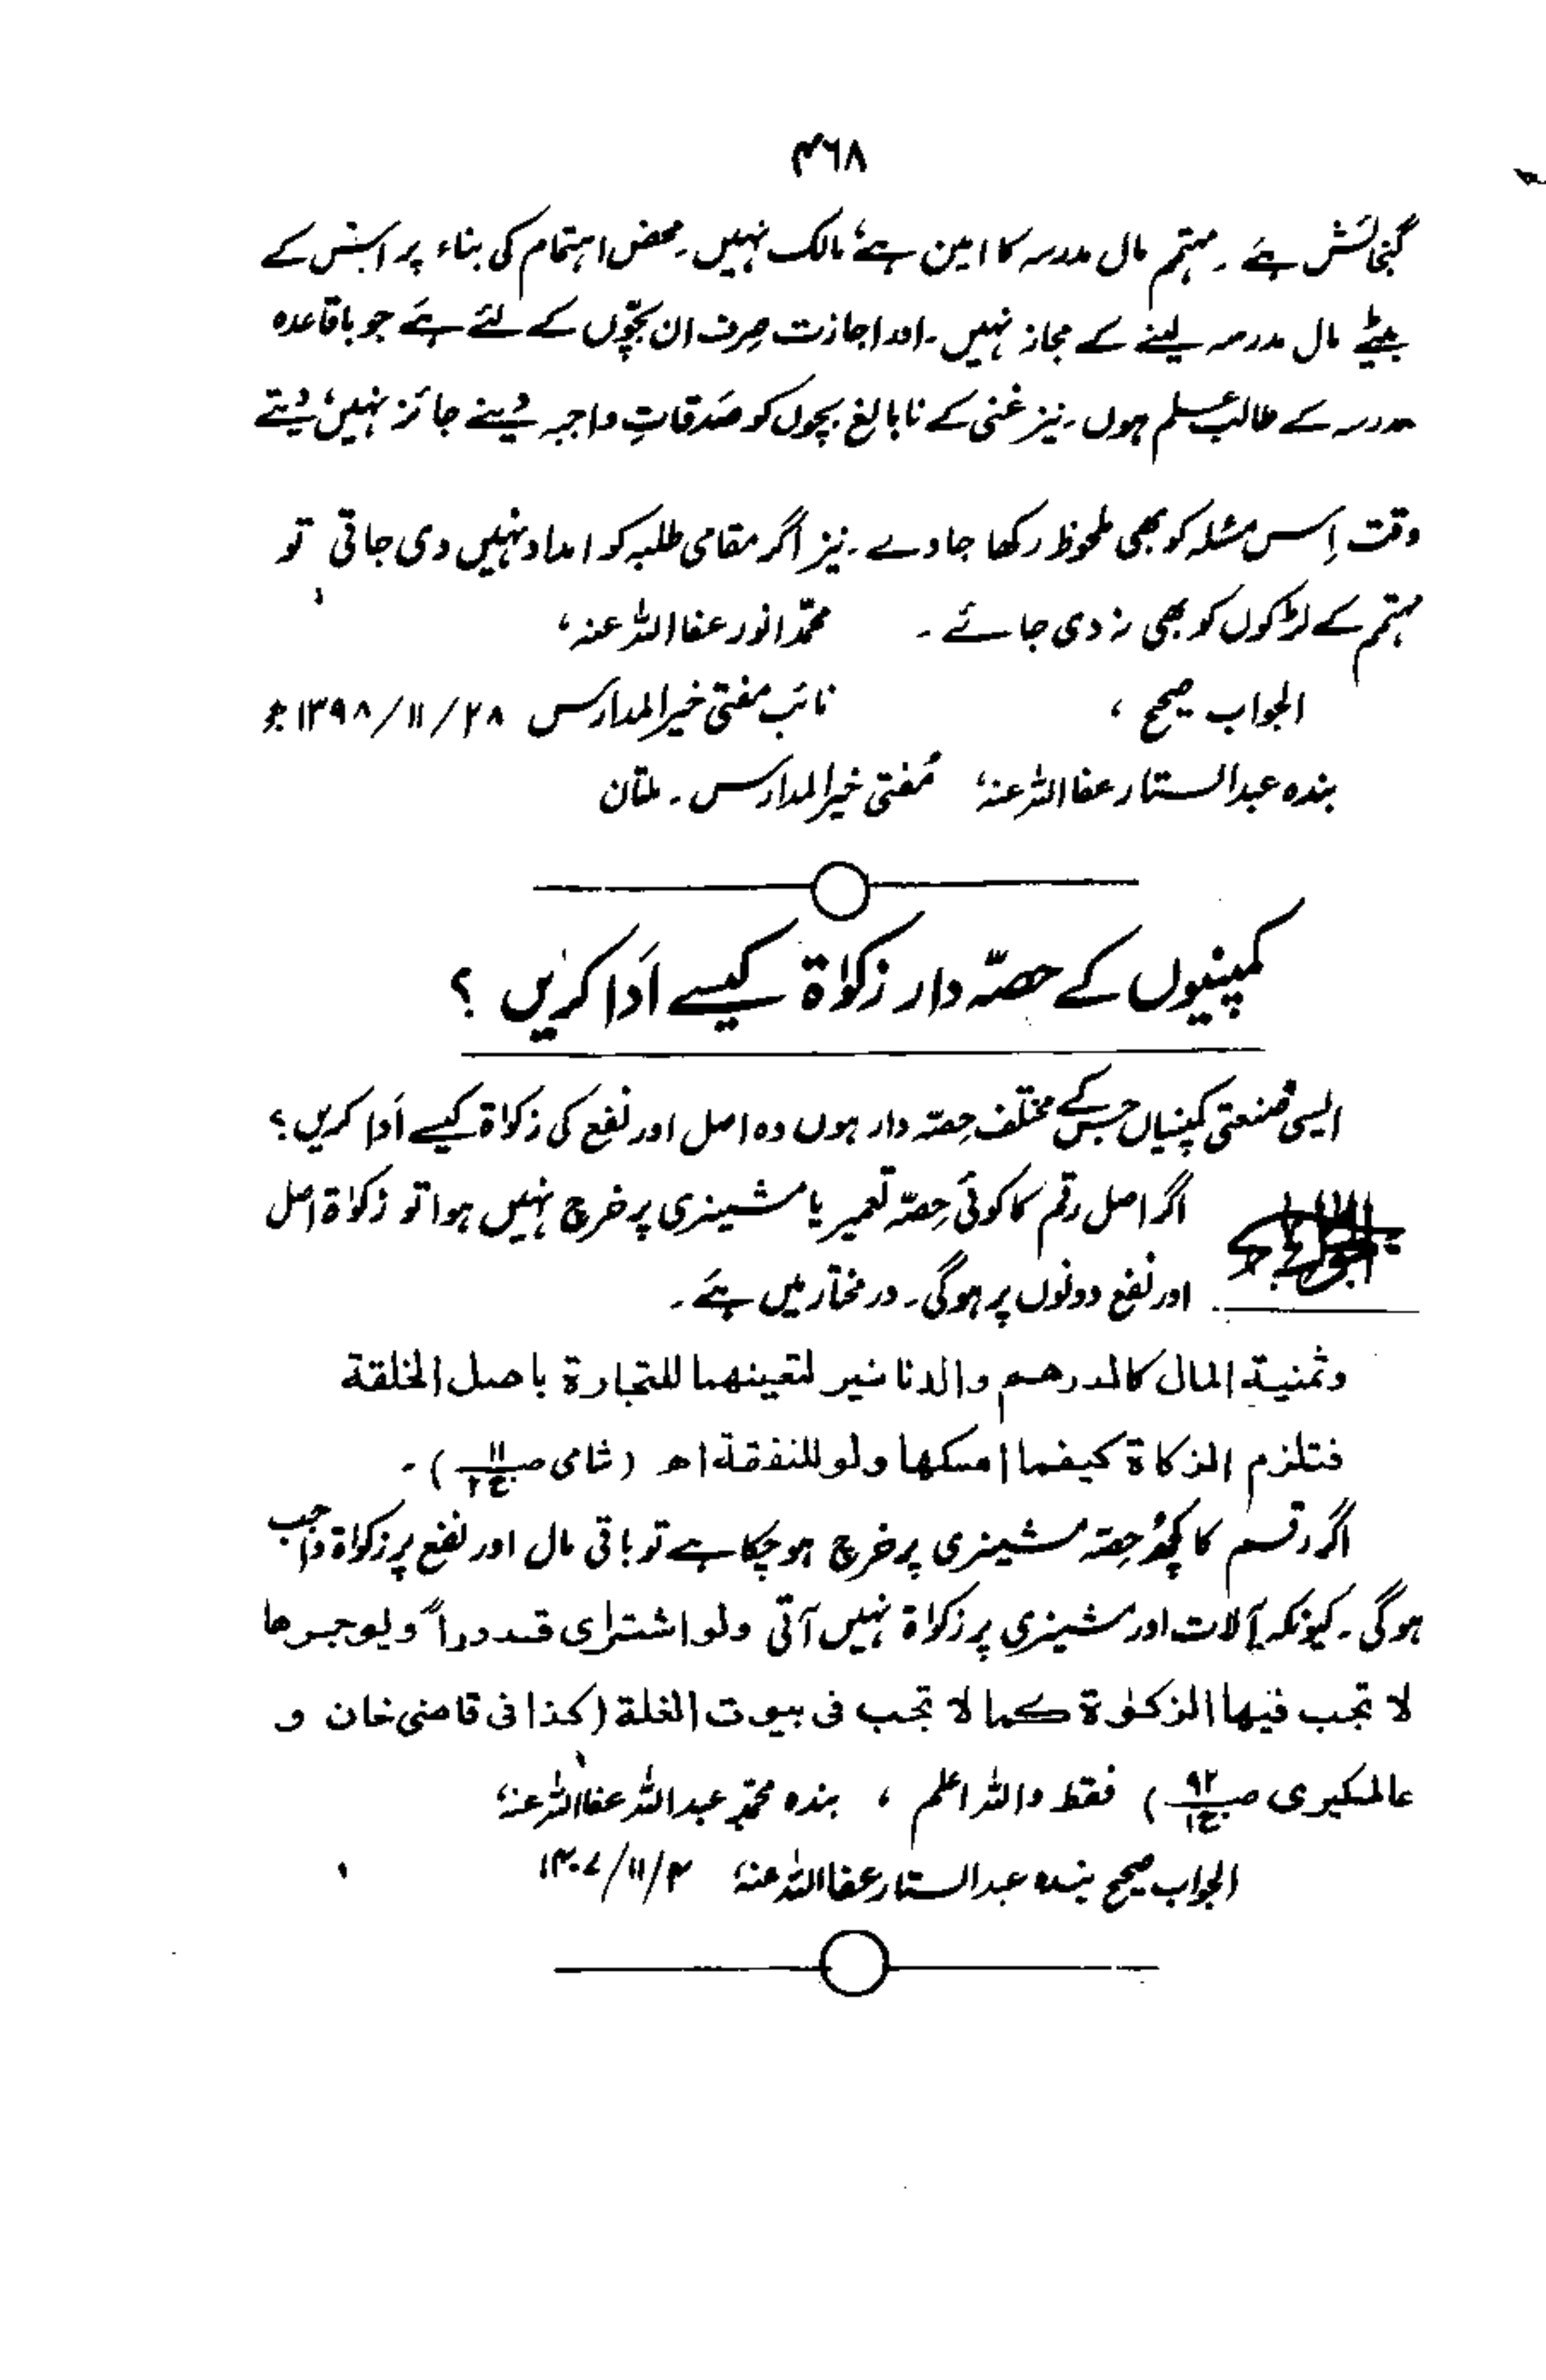 ۴۶۸
گنجائش ہے۔ مہتمم مال مدرسہ کا امین ہے، مالک نہیں۔ محض اہتمام کی بناء پر اس کے
بیٹے مال مدرسہ لینے کے مجاز نہیں۔ اور اجازت صرف ان بچّوں کے لئے ہے جو باقاعدہ
مدرسہ کے طالب علم ہوں۔ نیز غنی کے نابالغ بچوں کو صَدقاتِ واجبہ دینے جائز نہیں، دیتے
وقت اِس مسئلہ کو بھی ملحوظ رکھا جاوے۔ نیز اگر مقامی طلبہ کو امداد نہیں دی جاتی تو
مہتمم کے لڑکوں کو بھی نہ دی جائے۔ محمّد انور عفا اللہ عنہ،
الجواب صحیح، نائب مفتی خیر المدارس ۲۸/۱۱/۱۳۹۸ھ
بندہ عبد الستار عفا اللہ عنہٗ مُفتی خیر المدارس۔ ملتان
کمپنیوں کے حصّہ دار زکوٰۃ کیسے اَدا کریں؟
ایسی صنعتی کمپنیاں جس کے مختلف حِصّہ دار ہوں وہ اصل اور نفع کی زکوٰۃ کیسے اَدا کریں؟
الجواب اگر اصل رقم کا کوئی حِصّہ تعمیر یا مشینری پر خرچ نہیں ہوا تو زکوٰۃ اصل
اور نفع دونوں پر ہوگی۔ در مختار میں ہے۔
وثمنیة المال کالدرهم والدنانیر لتعینهما للتجارة باصل الخلقة
فتلزم الزکاة کیفما امسکها ولو للنفقة اھ (شامی ص ۱۱ ج ۲)۔
اگر رقم کا کچھ حِصّہ مشینری پر خرچ ہو چکا ہے تو باقی مال اور نفع پر زکوٰۃ واجب
ہوگی۔ کیونکہ آلات اور مشینری پر زکوٰۃ نہیں آتی ولو اشترای قدوراً ویوجرها
لا تجب فیها الزکوٰة کما لا تجب فی بیوت الغلة (کذا فی قاضی خان و
عالمکیری ص ۹۲ ج ۱) فقط واللہ اعلم، بندہ محمّد عبد اللہ عفا اللہ عنہٗ
الجواب صحیح بندہ عبد الستار عفا اللہ عنہٗ ۴/۱۱/۱۴۰۷